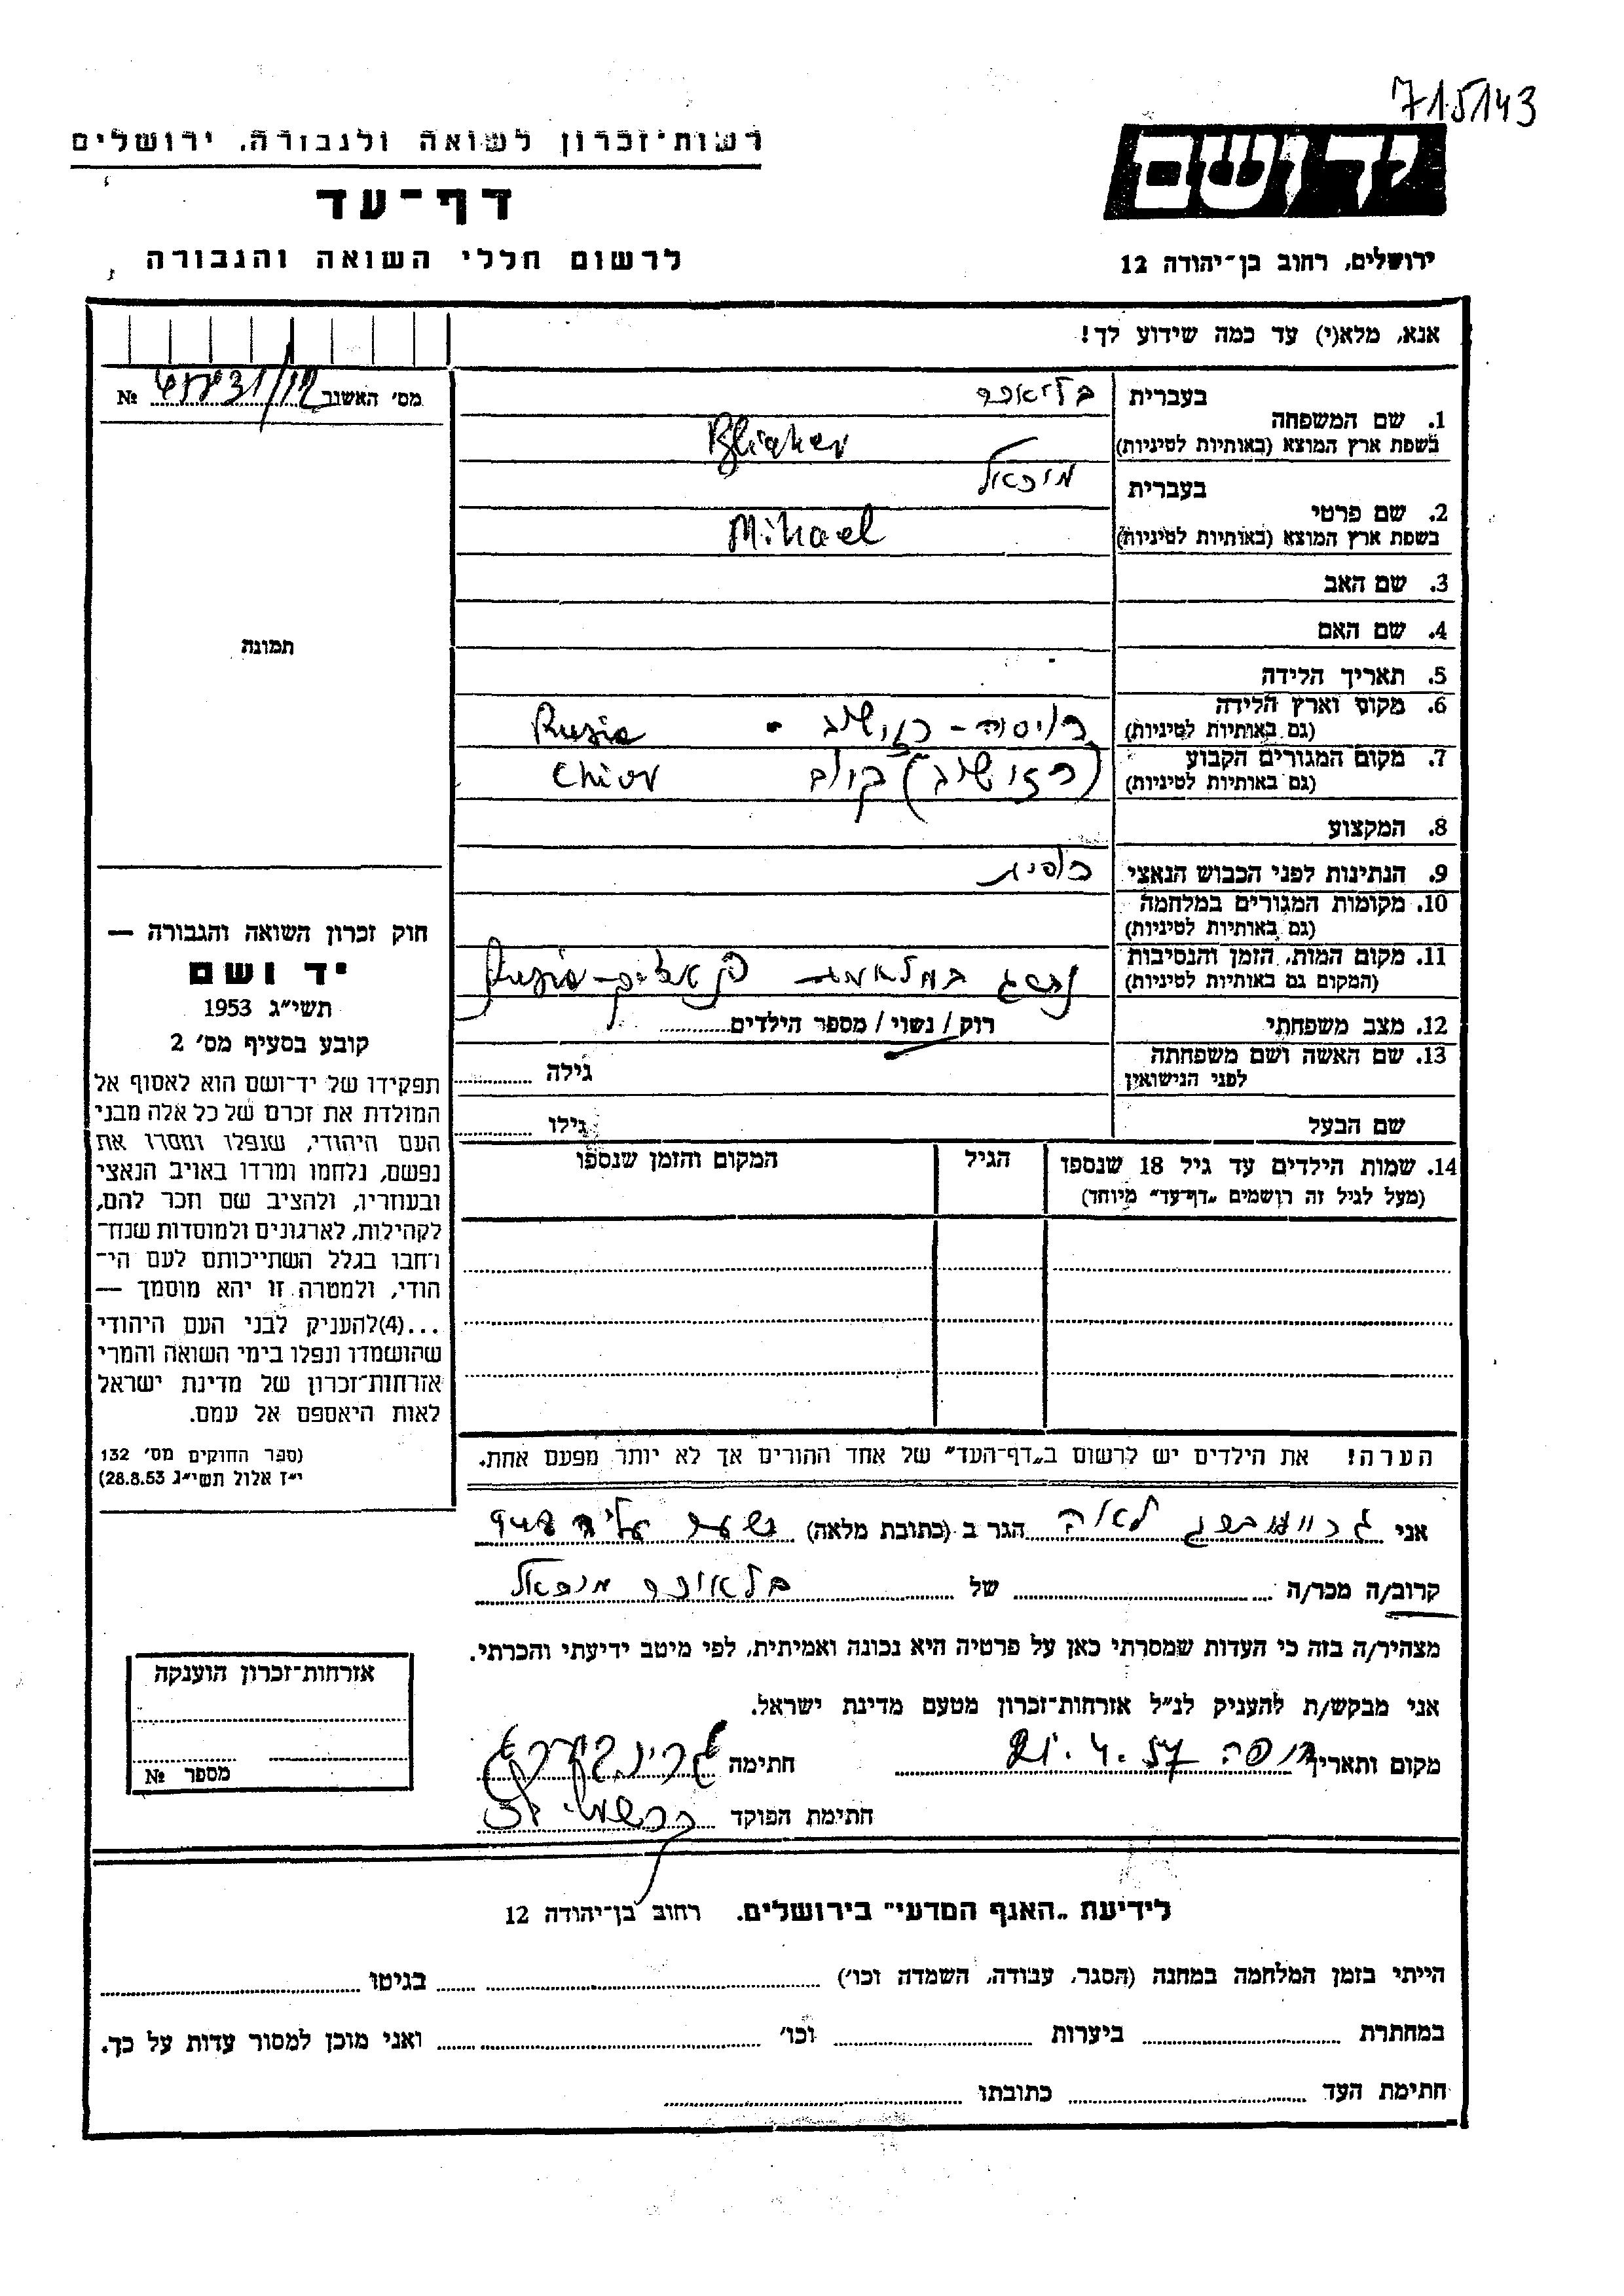 715143
רשות־זכרון לשואה ולגבורה, ירושלים
יד ושם
דף־עד
לרשום חללי השואה והגבורה
ירושלים, רחוב בן־יהודה 12
אנא, מלא(י) עד כמה שידוע לך!
מס׳ האשנר №
1. שם המשפחה בעברית בליאכר
בשפת ארץ המוצא (באותיות לטיניות) Bliaher
2. שם פרטי בעברית מיכאל
בשפת ארץ המוצא (באותיות לטיניות) Mihael
3. שם האב
4. שם האם
תמונה
5. תאריך הלידה
6. מקום וארץ הלידה רוסיה - Rusia
(גם באותיות לטיניות)
7. מקום המגורים הקבוע
(גם באותיות לטיניות)
8. המקצוע
9. הנתינות לפני הכבוש הנאצי
10. מקומות המגורים במלחמה
(גם באותיות לטיניות)
11. מקום המות, הזמן והנסיבות במלחמת Rusia
(המקום גם באותיות לטיניות)
12. מצב משפחתי רוק / נשוי / מספר הילדים
13. שם האשה ושם משפחתה גילה
לפני הנישואין
שם הבעל גילו
14. שמות הילדים עד גיל 18 שנספו הגיל המקום והזמן שנספו
(מעל לגיל זה רושמים „דף־עד" מיוחד)
חוק זכרון השואה והגבורה —
יד ושם
תשי״ג 1953
קובע בסעיף מס׳ 2
תפקידו של יד־ושם הוא לאסוף אל
המולדת את זכרם של כל אלה מבני
העם היהודי, שנפלו ומסרו את
נפשם, נלחמו ומרדו באויב הנאצי
ובעוזריו, ולהציב שם וזכר להם,
לקהילות, לארגונים ולמוסדות שנח־
רחבו בגלל השתייכותם לעם הי־
הודי, ולמטרה זו יהא מוסמך —
...(4)להעניק לבני העם היהודי
שהושמדו ונפלו בימי השואה והמרי
אזרחות־זכרון של מדינת ישראל
לאות היאספם אל עמם.
(ספר החוקים מס׳ 132
י״ז אלול תשי״ג 28.8.53)
הערה! את הילדים יש לרשום ב„דף־העד" של אחד ההורים אך לא יותר מפעם אחת.
אני לאה הגר ב (כתובת מלאה) שער עליה
קרוב/ה מכר/ה של בלאוכר מיכאל
מצהיר/ה בזה כי העדות שמסרתי כאן על פרטיה היא נכונה ואמיתית, לפי מיטב ידיעתי והכרתי.
אני מבקש/ת להעניק לנ״ל אזרחות־זכרון מטעם מדינת ישראל.
מקום ותאריך חיפה 21.4.57 חתימה
חתימת הפוקד
אזרחות־זכרון הוענקה
מספר №
לידיעת „האגף המדעי" בירושלים. רחוב בן־יהודה 12
הייתי בזמן המלחמה במחנה (הסגר, עבודה, השמדה וכו׳) בגיטו
במחתרת ביערות וכו׳ ואני מוכן למסור עדות על כך.
חתימת העד כתובתו